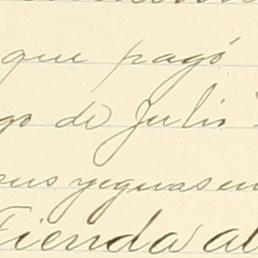 que pagó
go de Julio
sus yeguas en
Tienda al